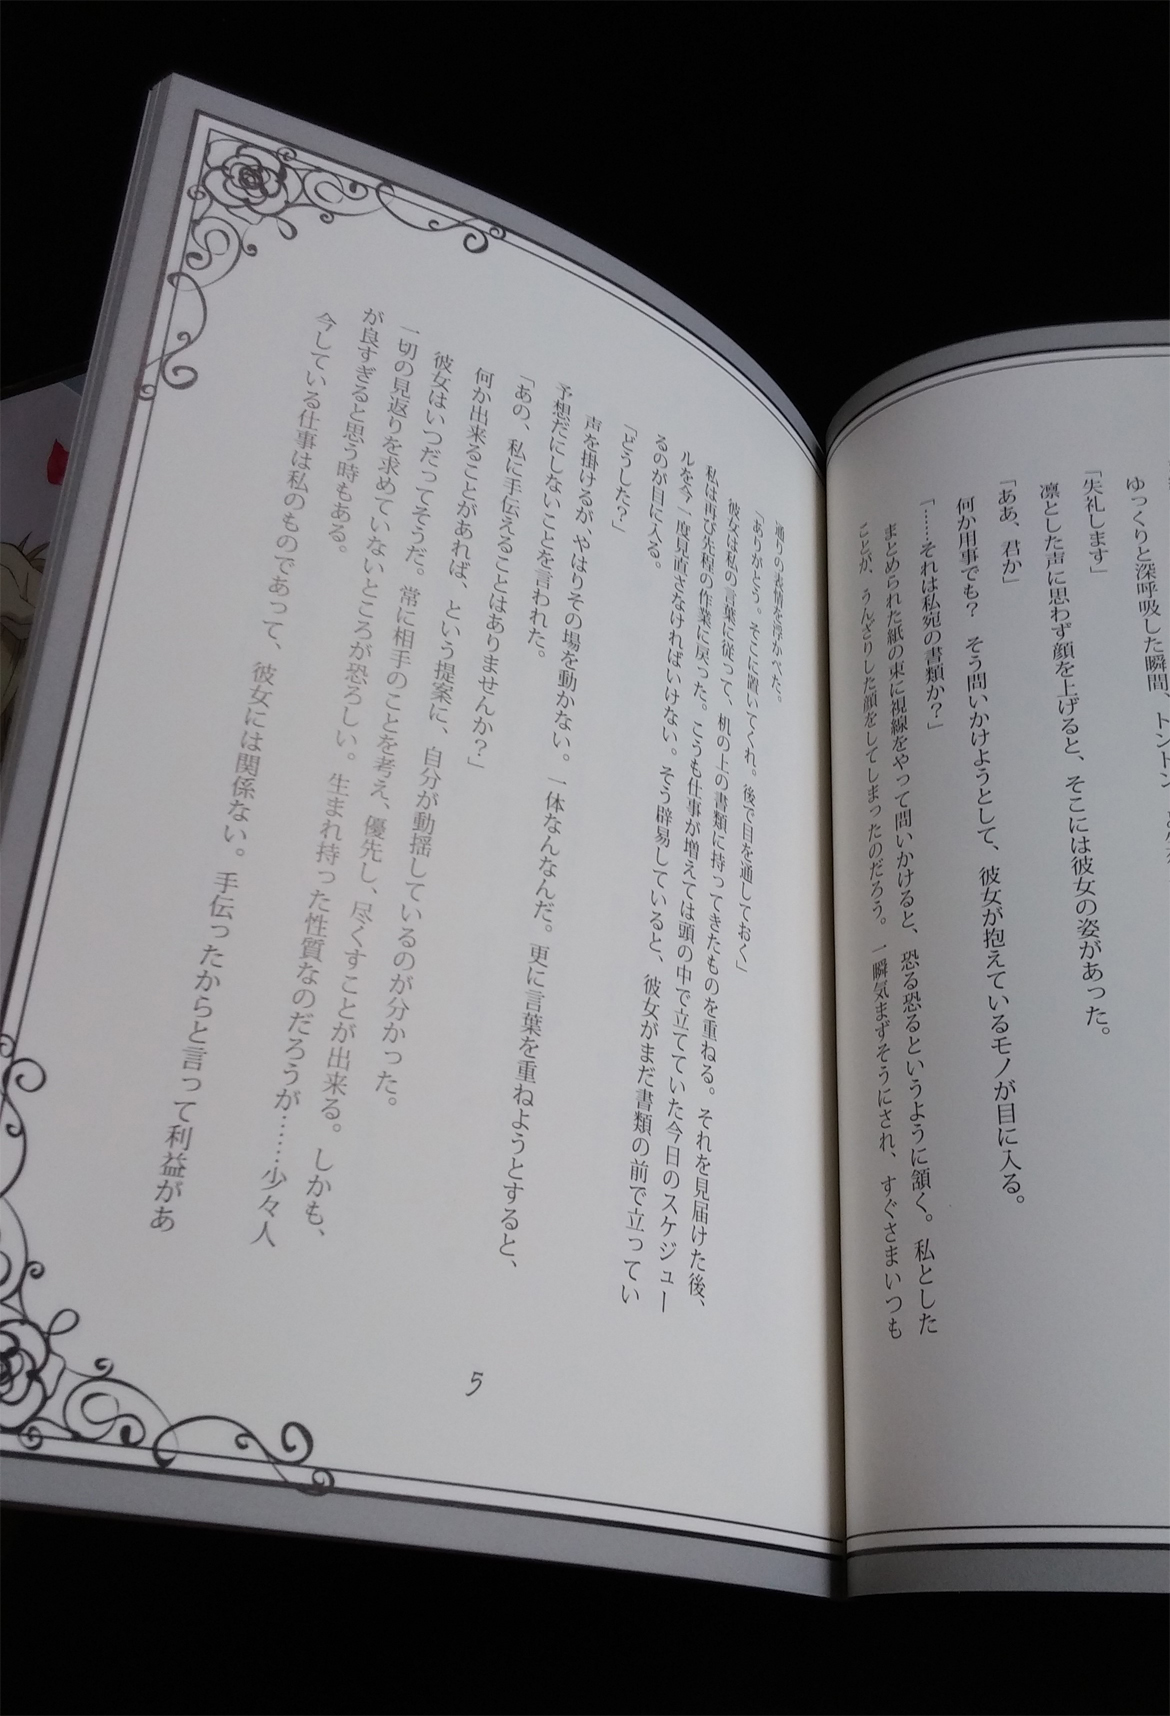 ゆっくりと深呼吸した瞬間、トントン
「失礼します」
凛とした声に思わず顔を上げると、そこには彼女の姿があった。
「ああ、君か」
何か用事でも？　そう問いかけようとして、彼女が抱えているモノが目に入る。
「……それは私宛の書類か？」
まとめられた紙の束に視線をやって問いかけると、恐る恐るというように頷く。私とした
ことが、うんざりした顔をしてしまったのだろう。一瞬気まずそうにされ、すぐさまいつも
通りの表情を浮かべた。
「ありがとう。そこに置いてくれ。後で目を通しておく」
彼女は私の言葉に従って、机の上の書類に持ってきたものを重ねる。それを見届けた後、
私は再び先程の作業に戻った。こうも仕事が増えては頭の中で立てていた今日のスケジュー
ルを今一度見直さなければいけない。そう辟易していると、彼女がまだ書類の前で立ってい
るのが目に入る。
「どうした？」
声を掛けるが、やはりその場を動かない。一体なんなんだ。更に言葉を重ねようとすると、
予想だにしないことを言われた。
「あの、私に手伝えることはありませんか？」
何か出来ることがあれば、という提案に、自分が動揺しているのが分かった。
彼女はいつだってそうだ。常に相手のことを考え、優先し、尽くすことが出来る。しかも、
一切の見返りを求めていないところが恐ろしい。生まれ持った性質なのだろうが……少々人
が良すぎると思う時もある。
今している仕事は私のものであって、彼女には関係ない。手伝ったからと言って利益があ
5